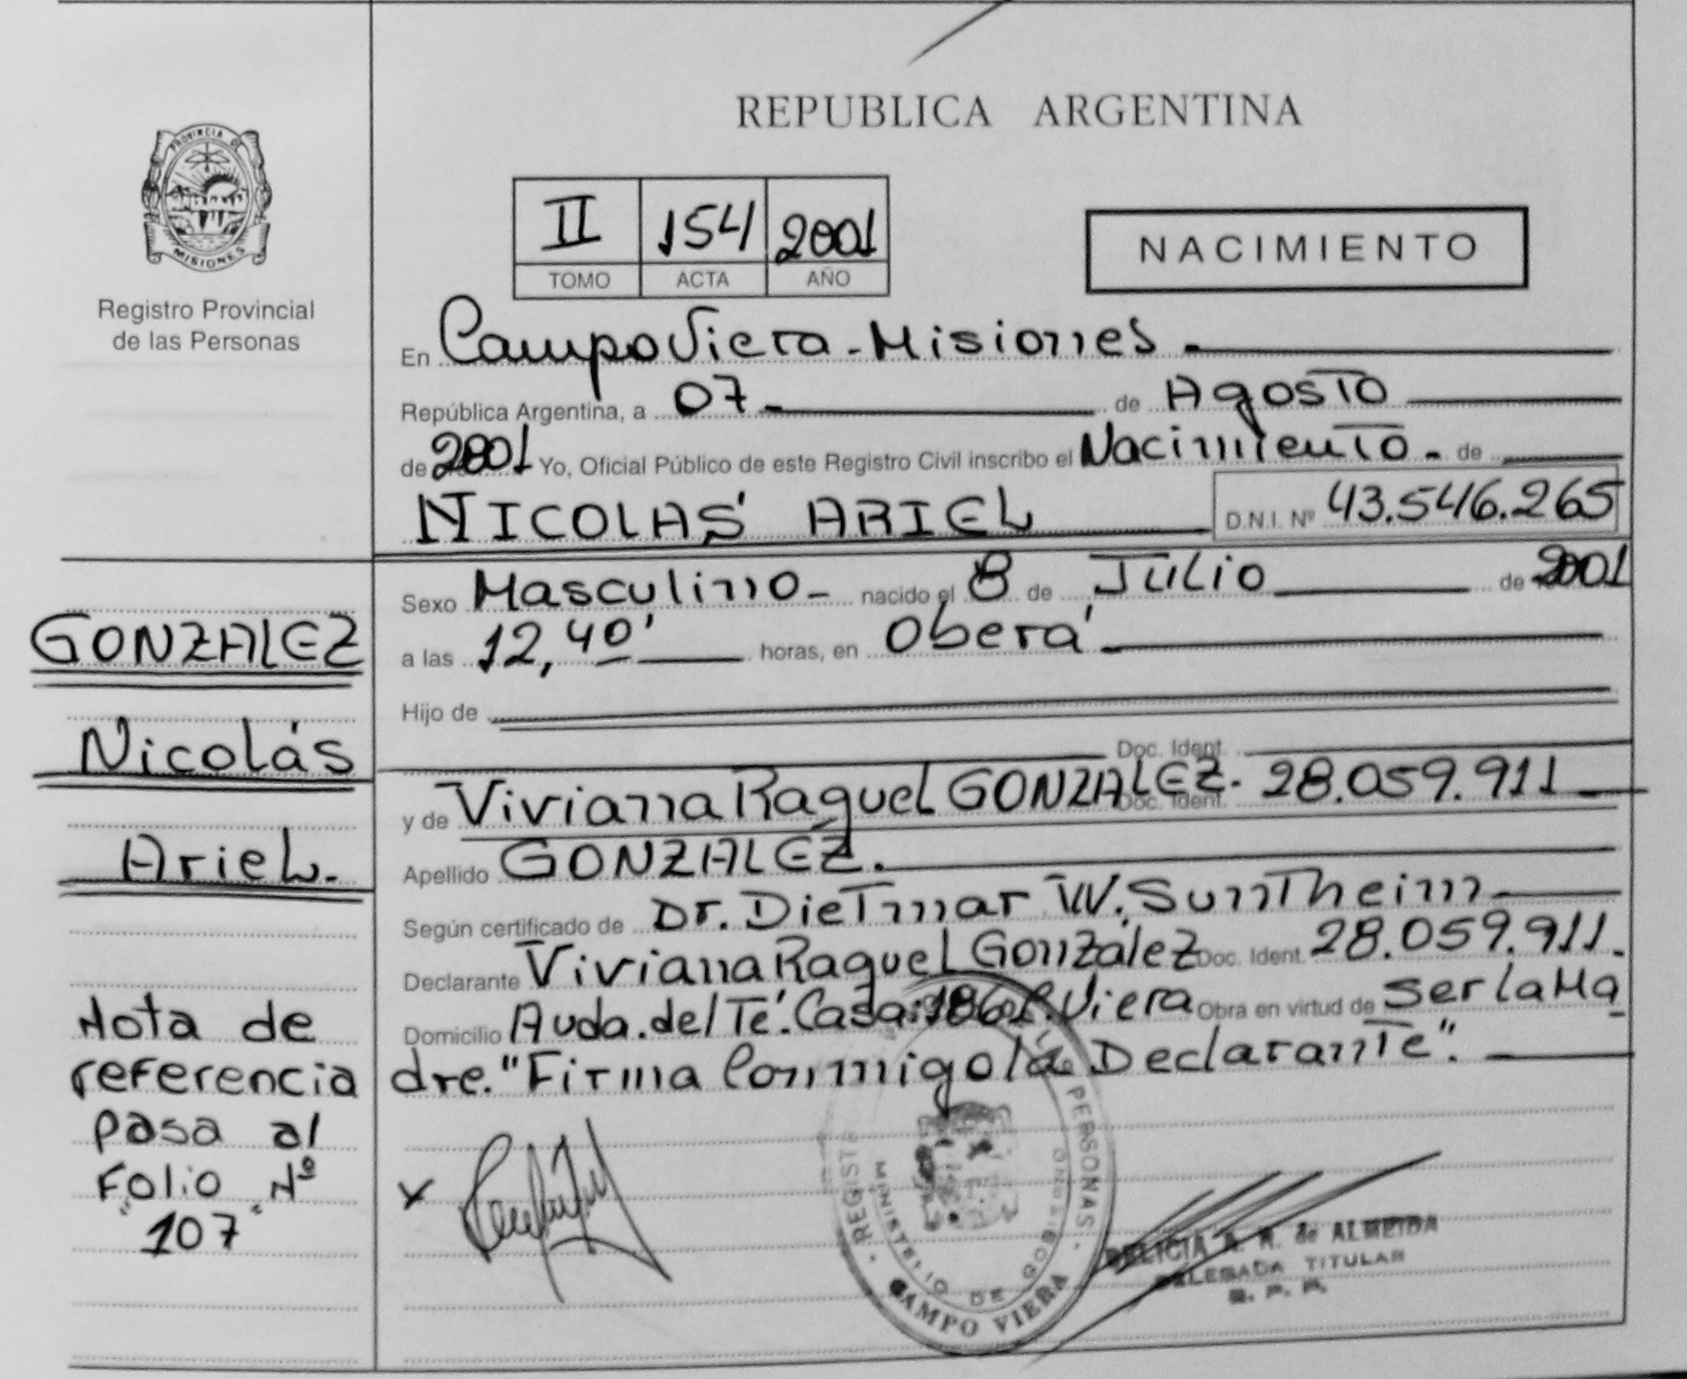 REPUBLICA ARGENTINA
PROVINCIA DE
MISIONES
Registro Provincial
de las Personas
II 154 2001
TOMO ACTA AÑO
NACIMIENTO
En Campo Viera - Misiones
República Argentina, a 07 de Agosto
de 2001 Yo, Oficial Público de este Registro Civil inscribo el Nacimiento de
NICOLÁS ARIEL D.N.I. Nº 43.546.265
Sexo Masculino nacido el 8 de Julio de 2001
a las 12,40' horas, en Oberá
Hijo de
Doc. Ident.
y de Viviana Raquel GONZALEZ. Doc. Ident. 28.059.911
Apellido GONZALEZ.
Según certificado de Dr. Dietmar W. Suntheim
Declarante Viviana Raquel González Doc. Ident. 28.059.911.
Domicilio Avda. del Té. Casa: 186 C. Viera Obra en virtud de ser la Ma
dre. "Firma Conmigo la Declarante".
GONZALEZ
Nicolás
Ariel.
Nota de
referencia
pasa al
Folio Nº
"107"
X
PERSONAS
MINISTERIO DE GOBIERNO
CAMPO VIERA
DELICIA A. R. de ALMEIDA
DELEGADA TITULAR
R. P. P.